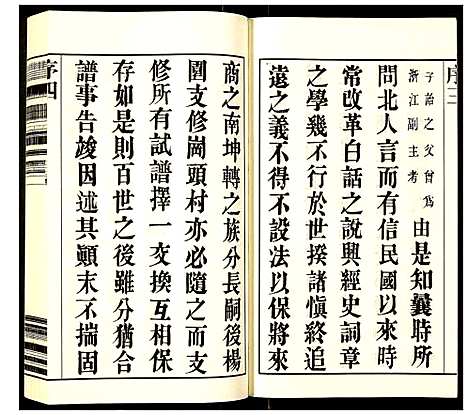 序三
子詒之父曾為
浙江副主考
由是知曩時所
問北人言而有信民國以來時
常改革白話之說興經史詞章
之學幾不行於世揆諸慎終追
遠之義不得不設法以保將來
商之南坤轉之族分長嗣後楊
圍支修崗頭村亦必隨之而支
修所有試譜擇一支換互相保
存如是則百世之後雖分猶合
譜事告竣因述其顛末不揣固
序四